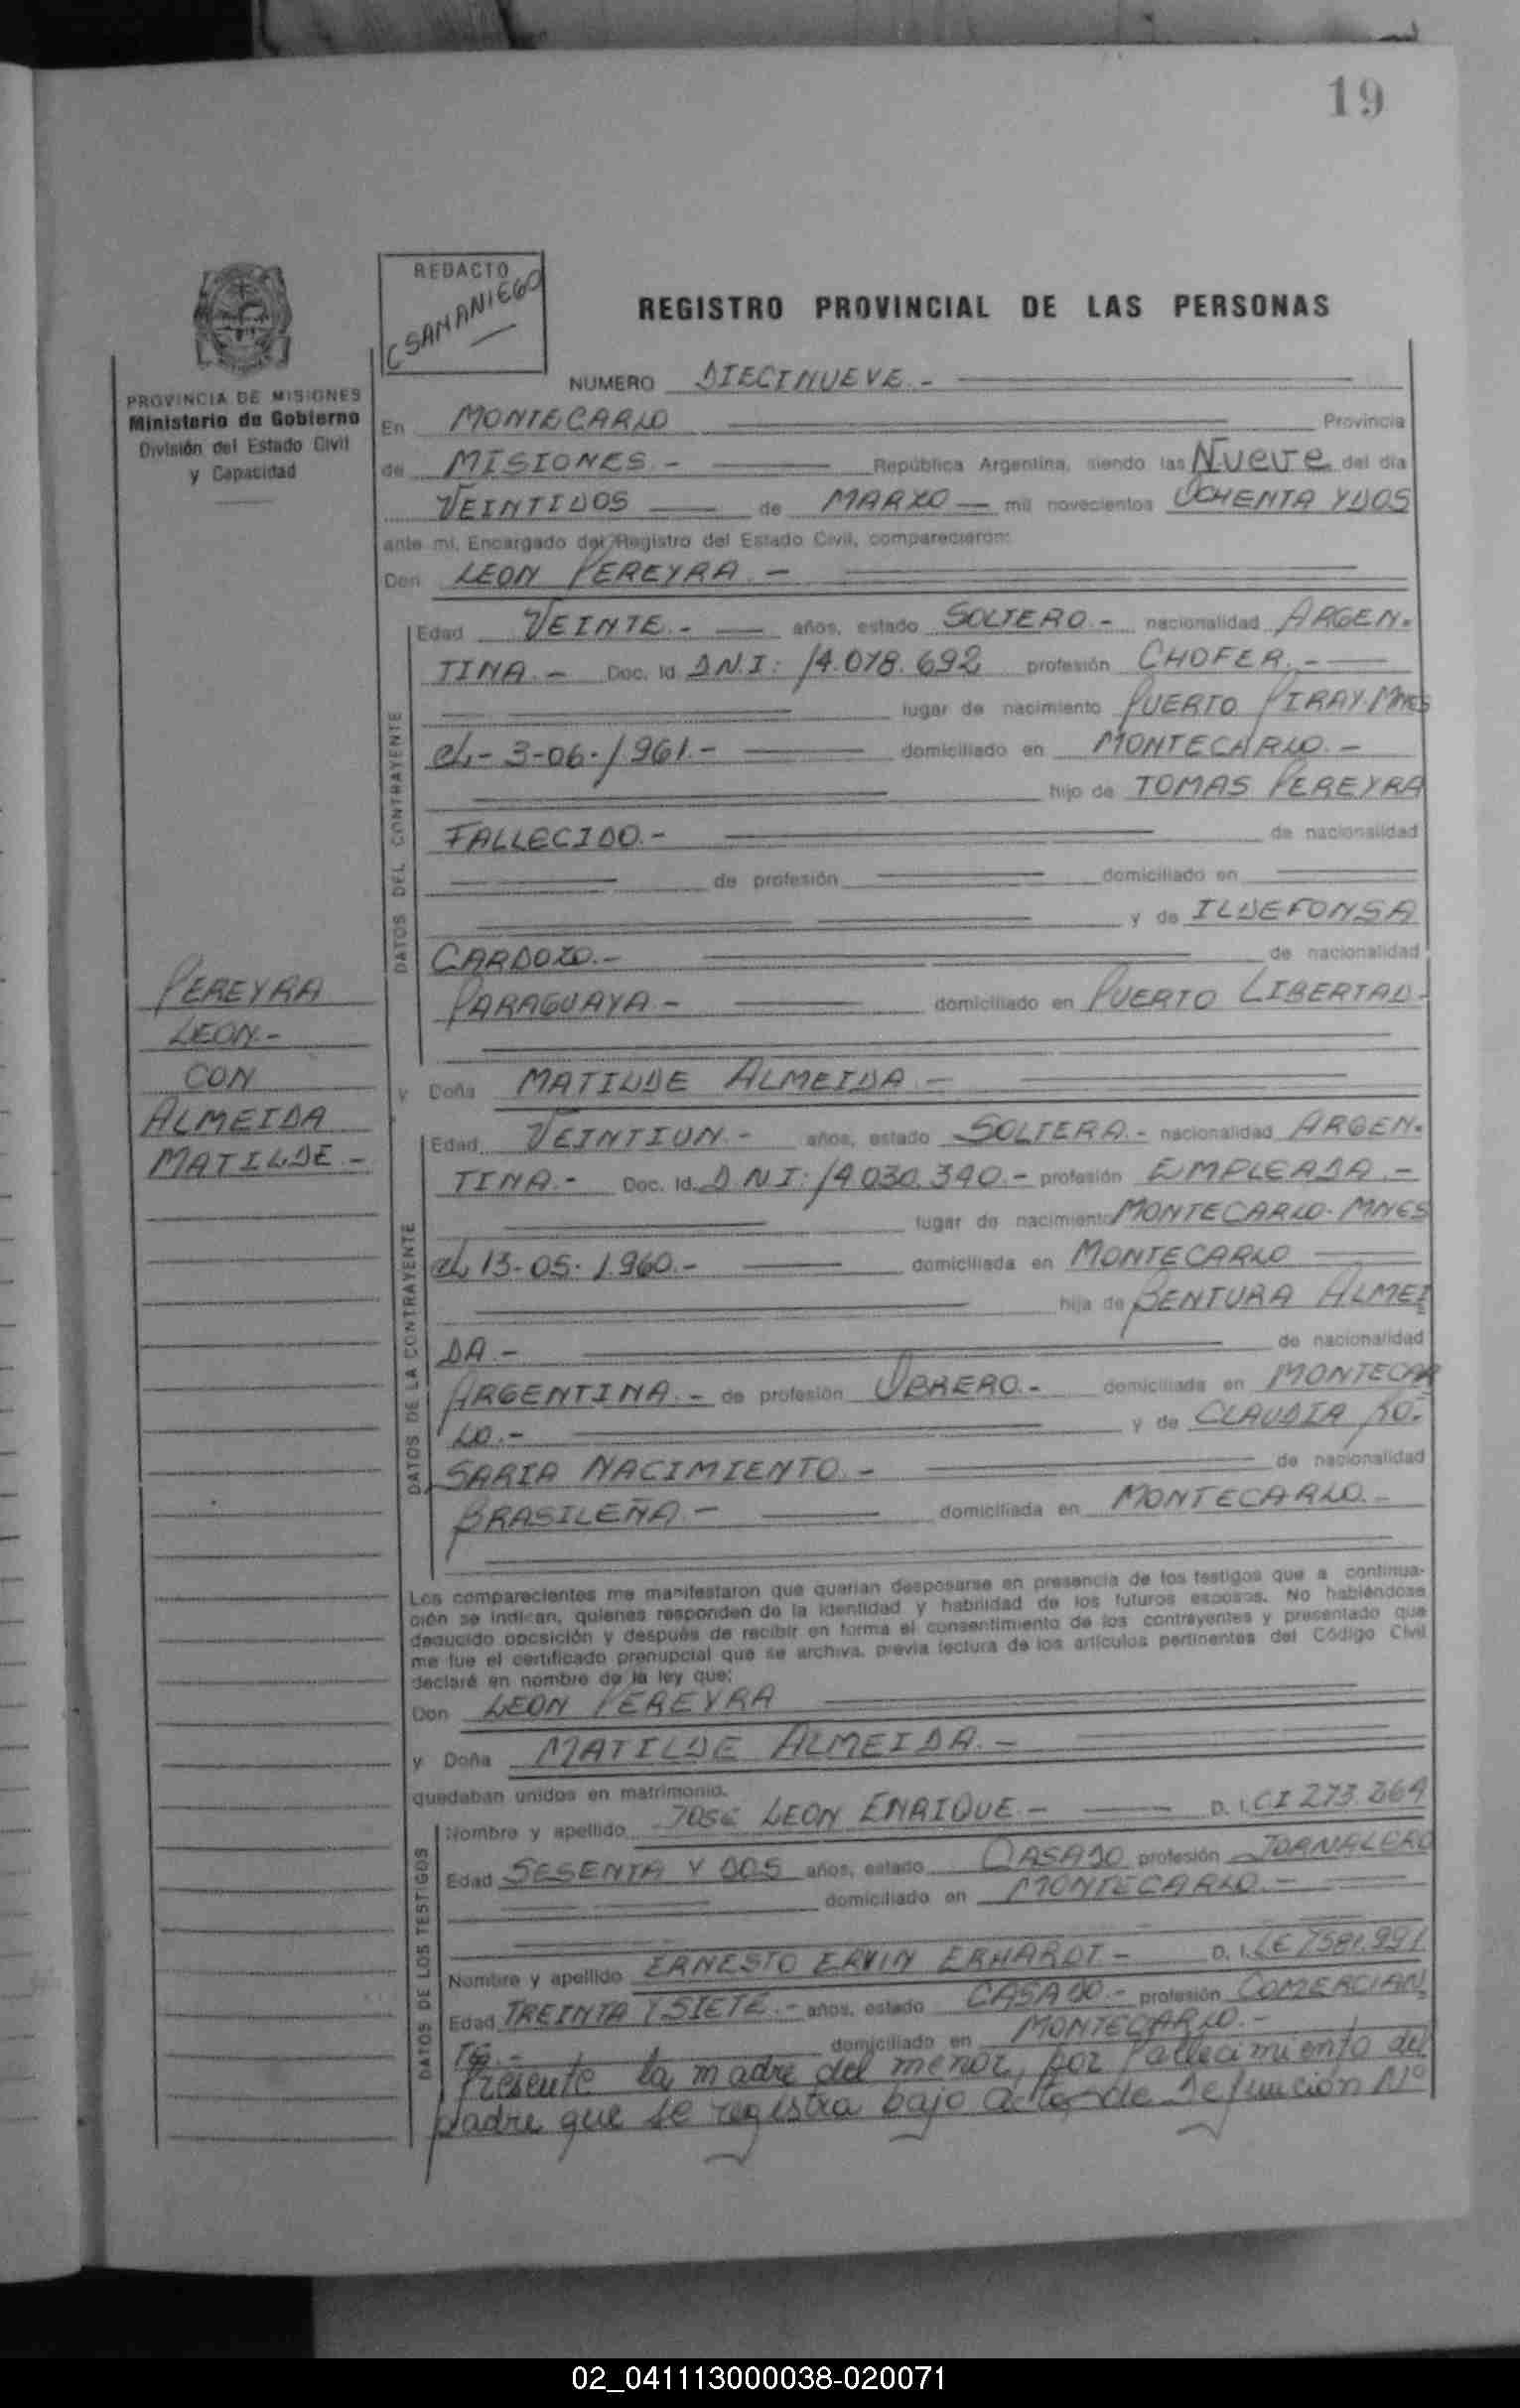 19
REDACTO
C SAMANIEGO
REGISTRO PROVINCIAL DE LAS PERSONAS
PROVINCIA DE MISIONES
Ministerio de Gobierno
División del Estado Civil
y Capacidad
NUMERO DIECINUEVE.-
En MONTECARLO Provincia
de MISIONES.- República Argentina, siendo las Nueve del día
VEINTIDOS de MARZO mil novecientos OCHENTA Y DOS
ante mí, Encargado del Registro del Estado Civil, comparecieron:
Don LEON PEREYRA.-
DATOS DEL CONTRAYENTE
Edad VEINTE.- años, estado SOLTERO.- nacionalidad ARGEN-
TINA.- Doc. Id. D.N.I: 14.078.692 profesión CHOFER.-
lugar de nacimiento PUERTO PIRAY-MNES
el- 3-06-1961.- domiciliado en MONTECARLO.-
hijo de TOMAS PEREYRA
FALLECIDO.- de nacionalidad
de profesión domiciliado en
y de ILDEFONSA
CARDOZO.- de nacionalidad
PARAGUAYA.- domiciliado en PUERTO LIBERTAD-
PEREYRA
LEON.-
CON
ALMEIDA
MATILDE.-
y Doña MATILDE ALMEIDA.-
DATOS DE LA CONTRAYENTE
Edad VEINTIUN.- años, estado SOLTERA.- nacionalidad ARGEN-
TINA.- Doc. Id. D.N.I: 14.030.340.- profesión EMPLEADA.-
lugar de nacimiento MONTECARLO-MNES
el 13-05-1.960.- domiciliada en MONTECARLO
hija de BENTURA ALMEI
DA.- de nacionalidad
ARGENTINA.- de profesión OBRERO.- domiciliada en MONTECAR
LO.- y de CLAUDIA RO-
SARIA NACIMIENTO.- de nacionalidad
BRASILEÑA.- domiciliada en MONTECARLO.-
Los comparecientes me manifestaron que querían desposarse en presencia de los testigos que a continua-
ción se indican, quienes responden de la identidad y habilidad de los futuros esposos. No habiéndose
deducido oposición y después de recibir en forma el consentimiento de los contrayentes y presentado que
me fue el certificado prenupcial que se archiva, previa lectura de los artículos pertinentes del Código Civil
declaré en nombre de la ley que:
Don LEON PEREYRA
y Doña MATILDE ALMEIDA.-
quedaban unidos en matrimonio.
DATOS DE LOS TESTIGOS
Nombre y apellido JOSE LEON ENRIQUE.- D. I. CI 273.264
Edad SESENTA Y DOS años, estado CASADO profesión JORNALERO
domiciliado en MONTECARLO.-
Nombre y apellido ERNESTO ERVIN ERHARDT.- D. I. LE 7581.991
Edad TREINTA Y SIETE.- años, estado CASADO.- profesión COMERCIAN
TE.- domiciliado en MONTECARLO.-
Presente la madre del menor, por fallecimiento del
padre que se registra bajo acta de Defunción Nº
02_041113000038-020071